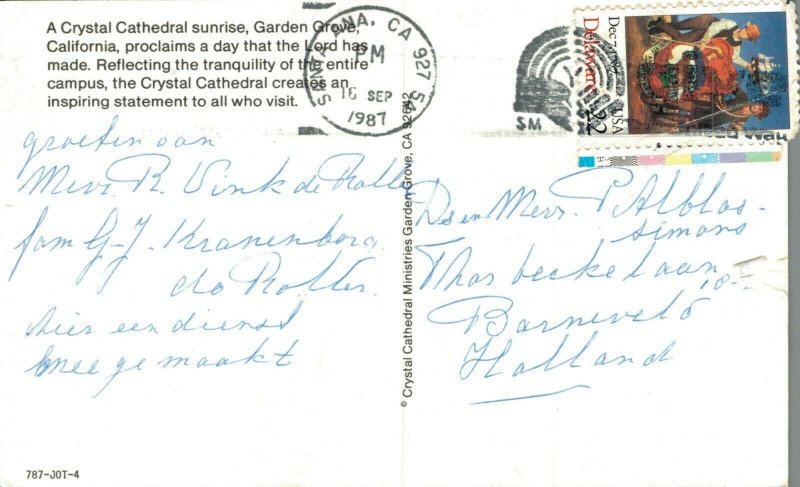 A Crystal Cathedral sunrise, Garden Grove,
California, proclaims a day that the Lord has
made. Reflecting the tranquility of the entire
campus, the Crystal Cathedral creates an
inspiring statement to all who visit.
SANTA ANA, CA 927
PM
16 SEP
1987
SM
Dec 7, 1787 USA
Delaware 22
groeten van
Mevr. R. Vink de Rotter
fam G-J. Kranenborg
de Rotter
hier een dienst
mee gemaakt
Ds en Mevr. P. Alblas-
simons
Thorbeckelaan
Barneveld
Holland
© Crystal Cathedral Ministries Garden Grove, CA 92642
787-J0T-4